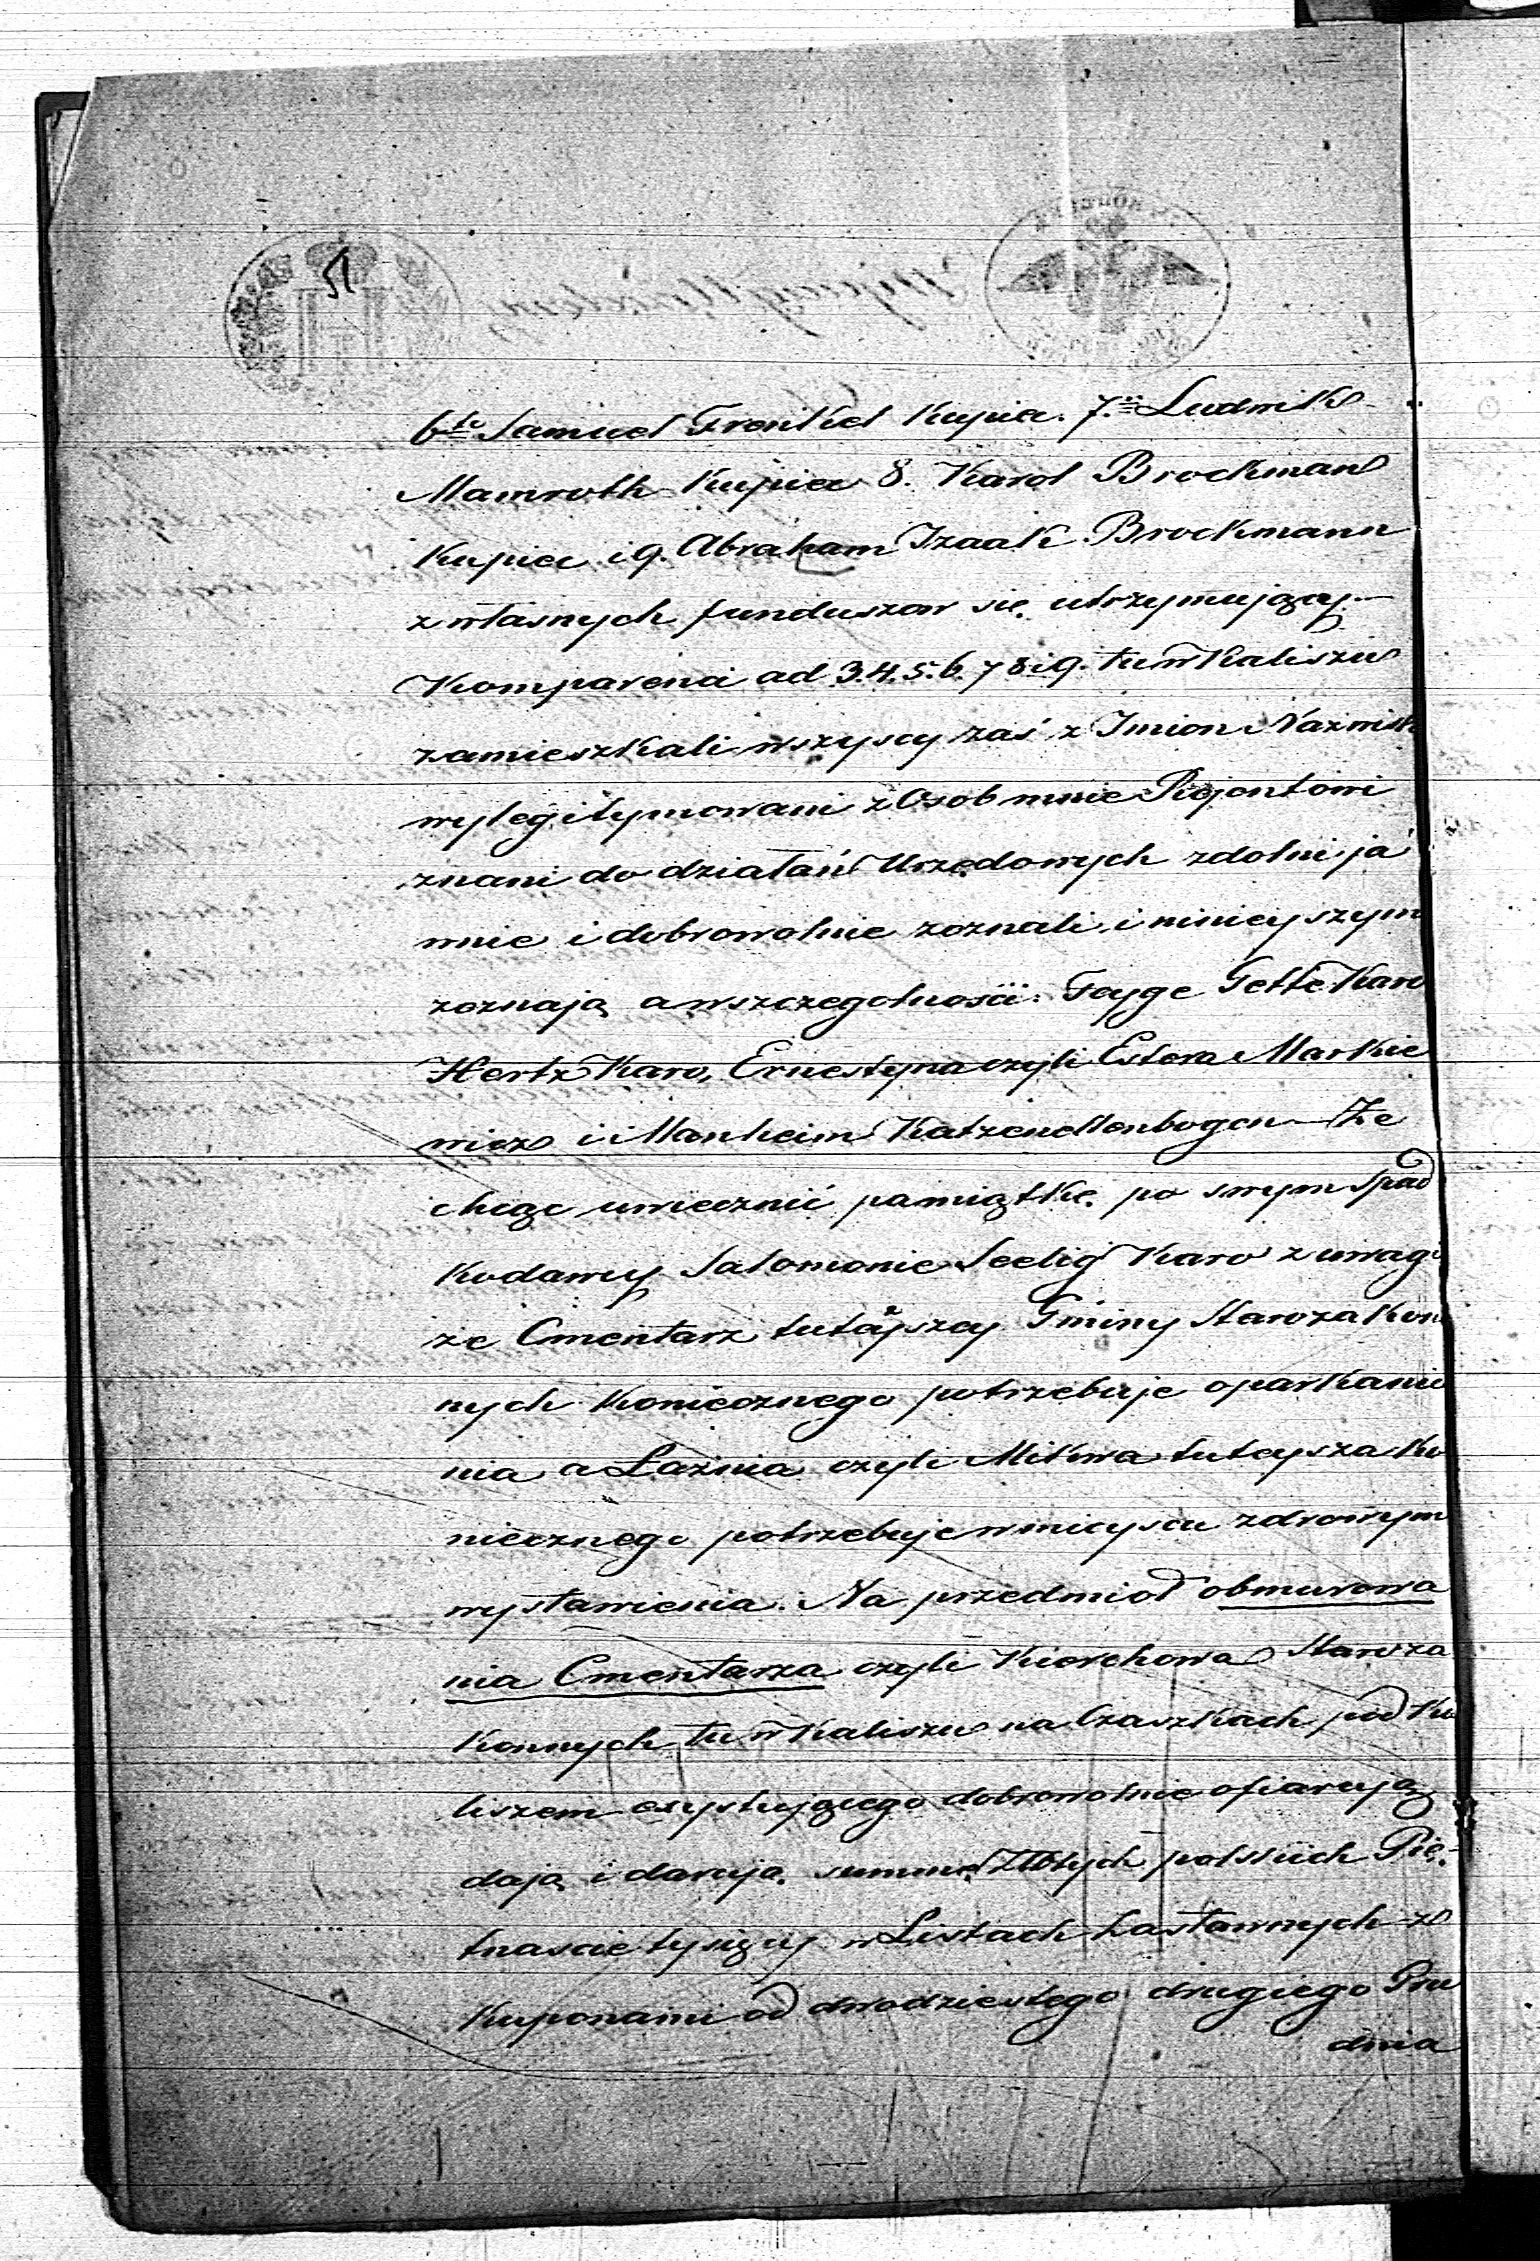 51
6to Samuel Frenkel Kupiec. 7. Ludwik
Mamroth Kupiec 8. Karol Brockman
Kupiec i 9. Abraham Izaak Brockmann
z własnych funduszow się utrzymujący
Komparenci ad 3. 4. 5. 6. 7 8 i 9. tu w Kaliszu
zamieszkali wszyscy zaś z Imion i Nazwisk
wylegitymowani z Osob mnie Rejentowi
znani do działań Urzędowych zdolni ja
wnie i dobrowolnie zeznali i nineyszym
zeznają a wszczegolności: Feyge Tette Karo
Hertz Karo, Ernestyna czyli Estera Markie
wicz i Manheim Katzenellenbogen Że
chcąc uwiecznić pamiątkę po swym Spad
kodawcy Salomonie Seelig Karo z uwagi
że Cmentarz tutajszey Gminy Starozakon
nych koniecznego potrzebuje oparkanie
nia a Łaźnia czyli Mikwa tuteysza ko
niecznego potrzebuje w mieyscu zdrowym
wystawienia. Na przedmiot obmurowa
nia Cmentarza czyli Kierchowa Staroza
konnych tu w Kaliszu na Czaszkach pod Ka
liszem exystującego dobrowolnie ofiarują
dają i darują summę Złotych polskich Pię
tnaście tysięcy w Listach Zastawnych z
Kuponami od dwudziestego drugiego Gru
dnia